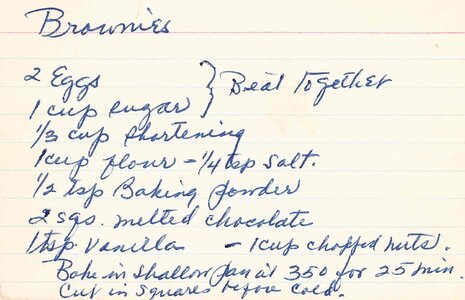 Brownies
2 Eggs } Beat Together
1 cup sugar
1/3 cup shortening
1 cup flour - 1/4 tsp salt.
1/2 tsp Baking powder
2 sqs. melted chocolate
1 tsp Vanilla - 1 cup chopped nuts.
Bake in shallow pan at 350 for 25 min.
Cut in squares before cold.